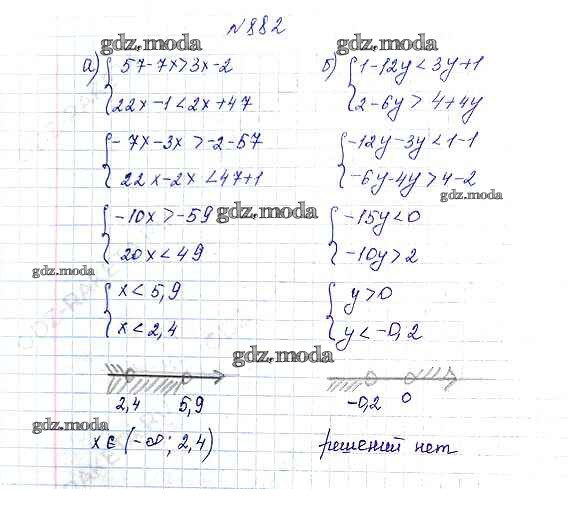 №882
gdz.moda
а) { 57-7x>3x-2
22x-1<2x+47
{ -7x-3x >-2-57
22x-2x <47+1
{ -10x>-59
20x<49
{ x<5,9
x<2,4
2,4 5,9
x∈(-∞; 2,4)
б) { 1-12y<3y+1
2-6y> 4+4y
{ -12y-3y<1-1
-6y-4y>4-2
{ -15y<0
-10y>2
{ y>0
y<-0,2
-0,2 0
решений нет
gdz.moda
gdz.moda
gdz.moda
gdz.moda
gdz.moda
gdz.moda
gdz.moda